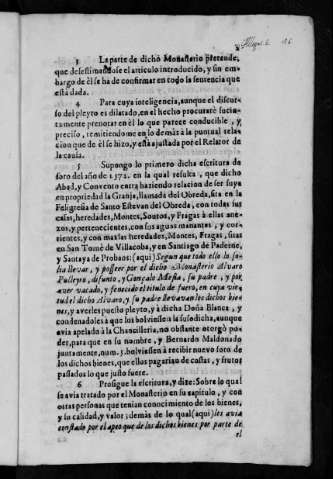 3 La parte de dicho Monasterio pretende,
que desestimandose el articulo introducido, y sin em-
bargo de èl se ha de confirmar en todo la sentencia que
està dada.
4 Para cuya inteligencia, aunque el discur-
so del pleyto es dilatado, en el hecho procurarè sucin-
tamente anotar en èl lo que parece conducible, y
preciso, remitiendome en lo demàs à la puntual rela-
cion que de èl se hizo, y està ajustada por el Relator de
la causa.
5 Supongo lo primero dicha escritura de
foro del año de 1572. en la qual resulta, que dicho
Abad, y Convento entra haziendo relacion de ser suya
en propriedad la Granja, llamada del Obreda, sita en la
Feligresia de Santo Estevan del Obreda, con todas sus
casas, heredades, Montes, Soutos, y Fragas à ellas ane-
xos, y pertenecientes, con sus aguas manantes, y cor-
rientes, y con mas las heredades, Montes, Fragas, sitas
en San Tomè de Villacoba, y en Santiago de Paderne,
y Santaya de Probaos: (aqui) Segun que todo ello lo so-
lia llevar, y posseer por el dicho Monasterio Alvaro
difunto, y Gonçalo su padre, y por
aver vacado, y fenecido el titulo de fuero, en cuya vir-
tud el dicho Alvaro, y su padre llevavan los dichos bie-
nes, y averles puesto pleyto, y à dicha Doña Blanca, y
condenadoles à que los bolviessen la susodicha, aunque
avia apelado à la Chancilleria, no obstante otorgò po-
der, para que en su nombre, y Bernardo Maldonado
juntamente, bolviessen à recibir nuevo foro de
los dichos bienes, que ellos pagarian de costas, y frutos
passados lo que justo fuere.
6 Prosigue la escritura, y dize: Sobre lo qual
se avia tratado por el Monasterio en su capitulo, y con
otras personas que tenian conocimiento de los bienes,
y su calidad, y valor; demàs de lo qual (aqui) les avia
constado por el apeo que de los dichos bienes por parte de
el